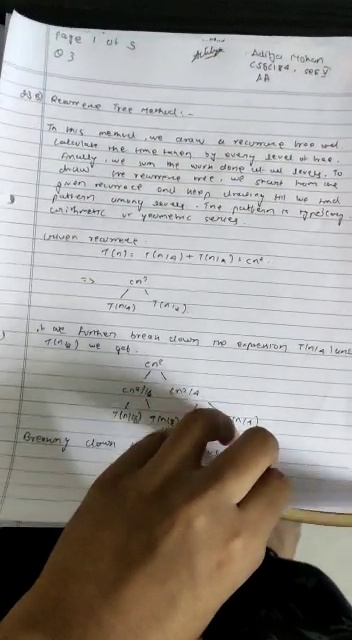 Page 1 of 5
Q 3
Aditya Mohan
AA
Recurrence Tree Method :-
In this method, we draw a recurrence tree and
calculate the time taken by every level of tree.
Finally, we sum the work done at all levels. To
draw the recurrence tree, we start from the
given recurrence and keep drawing till we find
pattern among levels. The pattern is typically
arithmetic or geometric series.
Given recurrence
T(n) = T(n/4) + T(n/2) + cn²
=> cn²
T(n/4) T(n/2)
If we further break down the expression T(n/4) and
T(n/2) we get.
cn²
cn²/16 cn²/4
T(n/16) T(n/8) T(n/4)
Breaking down